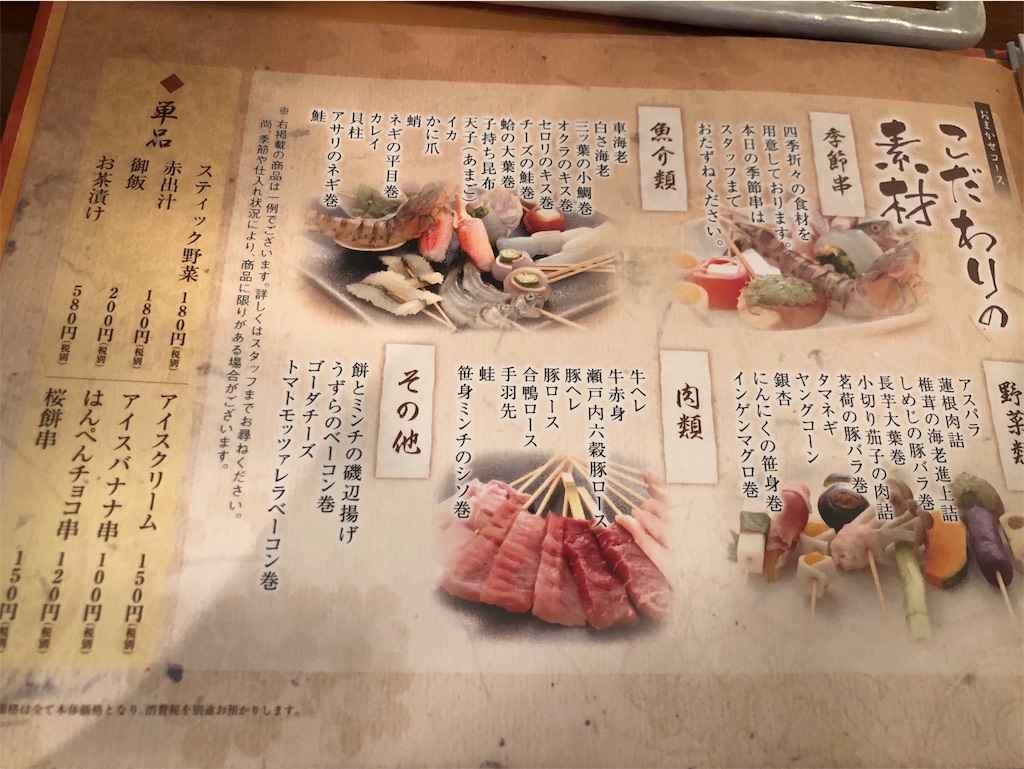 おまかせコース
こだわりの
素材
季節串
四季折々の食材を
用意しております。
本日の季節串は
スタッフまで
おたずねください。
魚介類
車海老
白さ海老
三ッ葉の小鯛巻
オクラのキス巻
セロリのキス巻
チーズの鮭巻
蛤の大葉巻
子持ち昆布
天子（あまご）
イカ
かに爪
蛸
ネギの平目巻
カレイ
貝柱
アサリのネギ巻
鮭
野菜類
アスパラ
蓮根肉詰
椎茸の海老進上詰
しめじの豚バラ巻
長芋大葉巻
小切り茄子の肉詰
茗荷の豚バラ巻
タマネギ
ヤングコーン
銀杏
にんにくの笹身巻
インゲンマグロ巻
肉類
牛ヘレ
牛赤身
瀬戸内六穀豚ロース
豚ヘレ
豚ロース
合鴨ロース
手羽先
蛙
笹身ミンチのシソ巻
その他
餅とミンチの磯辺揚げ
うずらのベーコン巻
ゴーダチーズ
トマトモッツァレラベーコン巻
※ 右掲載の商品は一例でございます。詳しくはスタッフまでお尋ねください。
尚、季節や仕入れ状況により、商品に限りがある場合がございます。
◆単品
スティック野菜 180円(税別)
赤出汁 180円(税別)
御飯 200円(税別)
お茶漬け 580円(税別)
アイスクリーム 150円(税別)
アイスバナナ串 100円(税別)
はんぺんチョコ串 120円(税別)
桜餅串 150円(税別)
価格は全て本体価格となり、消費税を別途お預かりします。